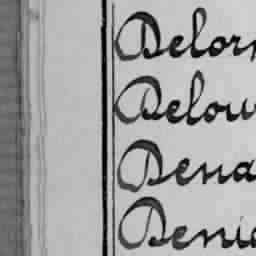 Delor
Delou
Dena
Deni